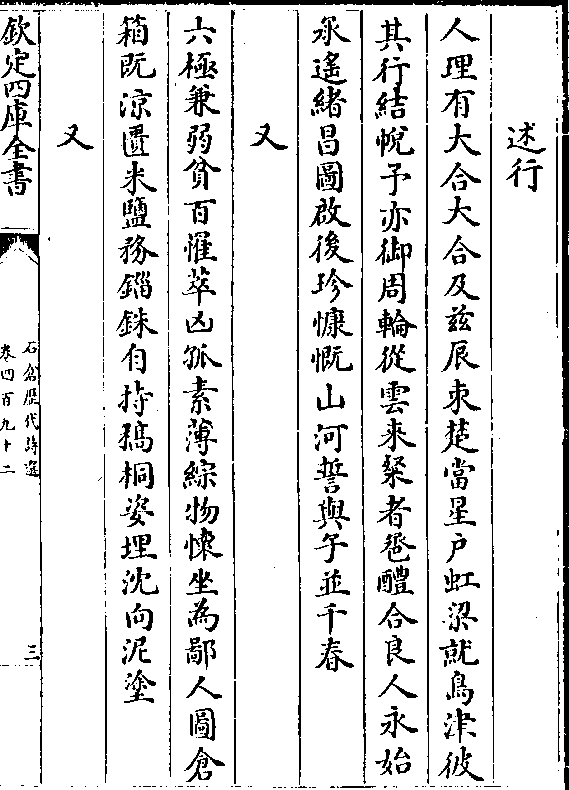 述行
人理有大合大合及茲辰束楚當星户虹梁就鳥津彼
其行結帨予亦御周輪從雲来粲者卺醴合良人永始
承遙緒昌圖啟後珍慷慨山河誓與子並千春
又
六極兼弱貧百罹萃凶孤素薄綜物懐坐為鄙人圖倉
箱既凉匱米鹽務錙銖自持孤桐姿埋沈向泥塗
又
欽定四庫全書
石倉歴代詩選
卷四百九十二
三